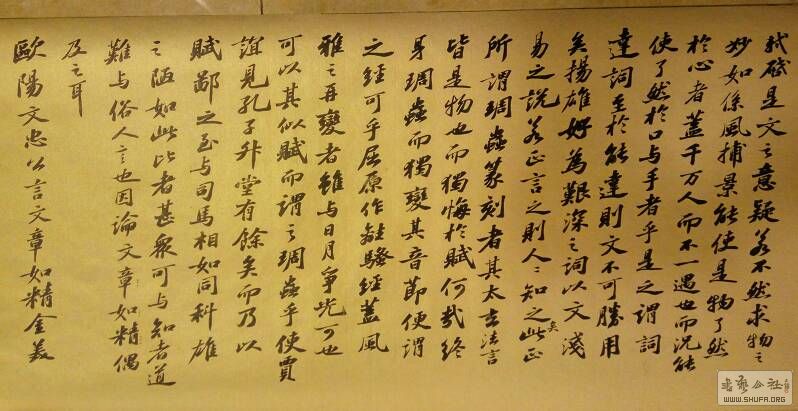 是文之意疑若不然求物之
妙如係風捕景能使是物了然
於心者蓋千万人而不一遇也而況能
使了然於口与手者乎是之謂詞
達詞至於能達則文不可勝用
矣揚雄好為艱深之詞以文淺
易之說若正言之則人〻知之矣此正
所謂琱蟲篆刻者其太玄法言
皆是物也而獨悔於賦何哉終
身琱蟲而獨變其音節便謂
之經可乎屈原作離騷經蓋風
雅之再變者雖与日月爭光可也
可以其似賦而謂之琱蟲乎使賈
誼見孔子升堂有餘矣而乃以
賦鄙之至与司馬相如同科雄
之陋如此比者甚眾可与知者道
難与俗人言也因論文章如精偶
及之耳
歐陽文忠公言文章如精金美
書藝公社
WWW.SHUFA.ORG